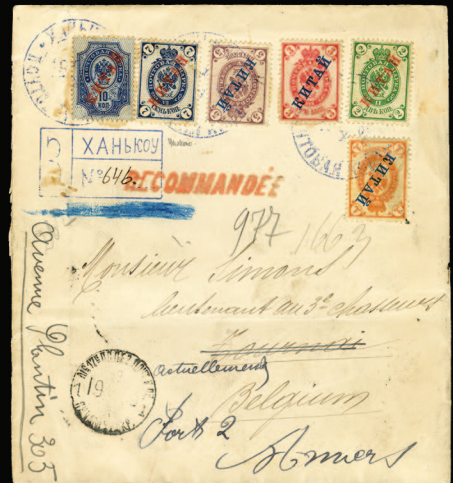 10
КОП
КИТАЙ
7
7
КИТАЙ
КИТАЙ
КИТАЙ
КИТАЙ
КИТАЙ
ХАНЬКОУ
№646.
RECOMMANDÉE
977
1663
Monsieur Simons
lieutenant au 3e chasseurs
Tournai
actuellement
Belgium
Fort 2
Anvers
Avenue Plantin 305